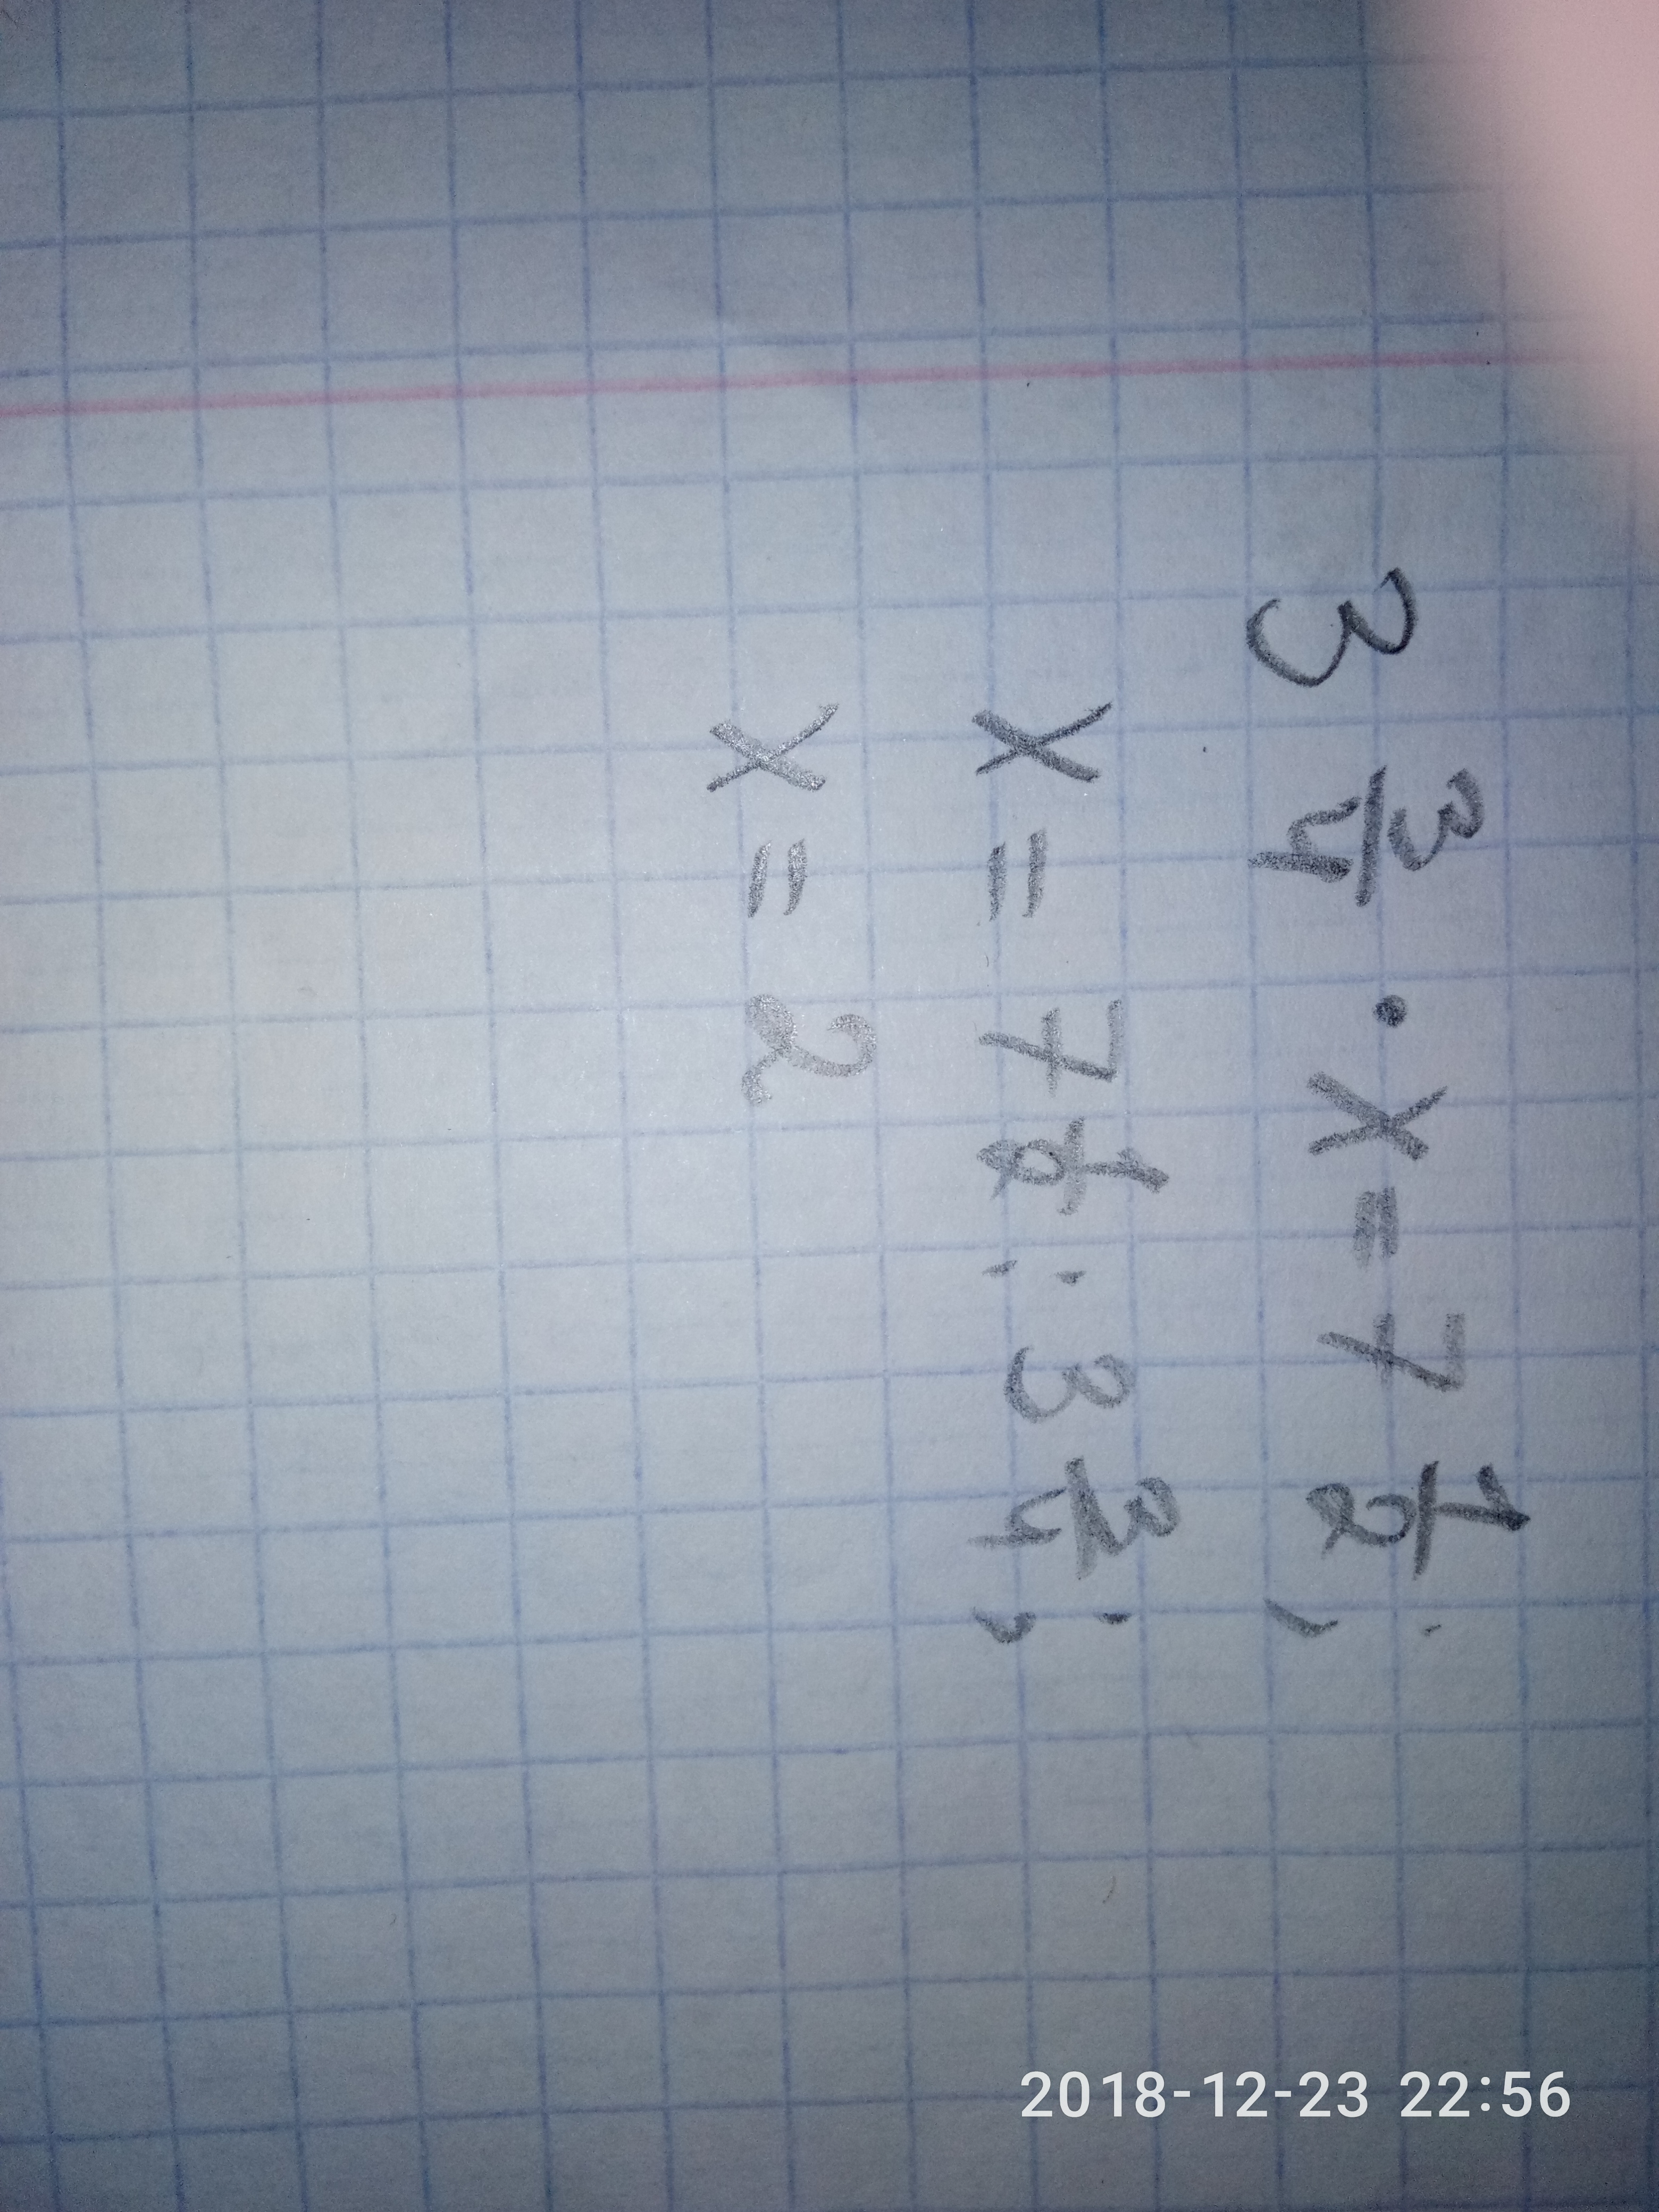 3 3/4 · x = 7 1/2 ;
x = 7 1/2 : 3 3/4 ;
x = 2
2018-12-23 22:56